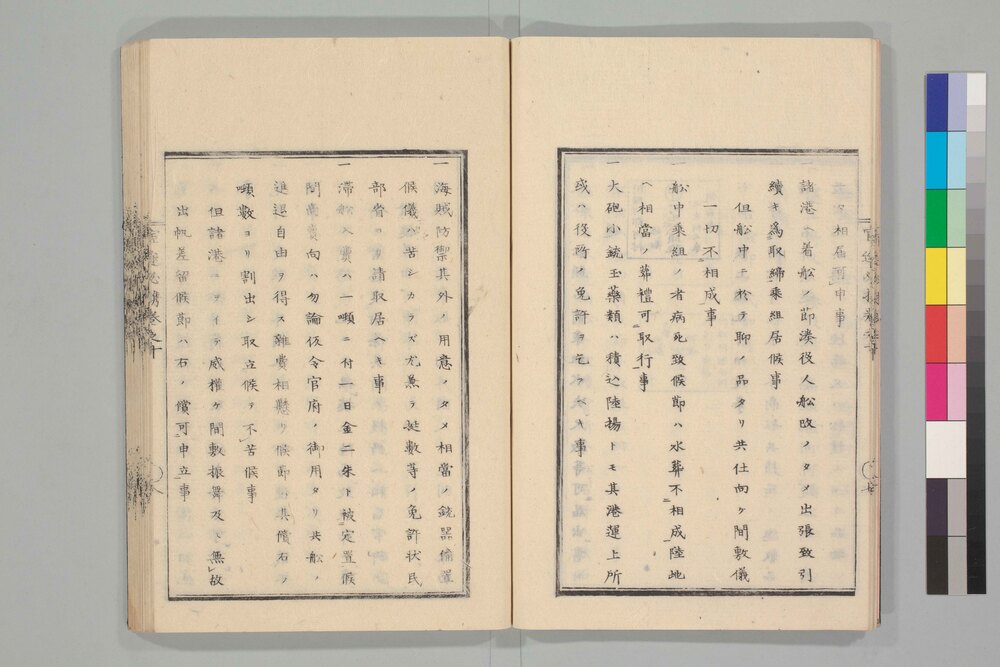 相届可申事
一 諸港ニ着船ノ節湊役人船改ノタメ出張致引
續キ為取締乗組居候事
但船中ニ於テ聊ノ品タリ共仕向ケ間敷儀
一切不相成事
一 船中乗組ノ者病死致候節ハ水葬不相成陸地
ヘ相當ノ葬禮可取行事
一 大砲小銃玉藥類ハ積込陸揚トモ其港運上所
或ハ役所ノ免許ヲ乞フヘキ事
一 海賊防禦其外ノ用意ノタメ相當ノ銃器備置
候儀ハ苦シカラズ尤兼テ挺數等ノ免許状民
部省ヨリ請取居ヘキ事
一 滞船入費ハ一噸ニ付一日金二朱ト被定置候
間商賣向ハ勿論仮令官府ノ御用タリ共船ノ
進退自由ヲ得ス雑費相懸リ候節ハ其償石ヲ
噸數ヨリ割出シ取立候テ不苦候事
但諸港ニヲイテ威權ケ間敷振舞及ヒ無故
出帆差留候節ハ右ノ償可申立事